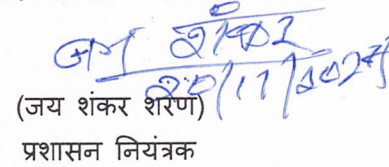 जय शंकर
20/11/2024
(जय शंकर शरण)
प्रशासन नियंत्रक